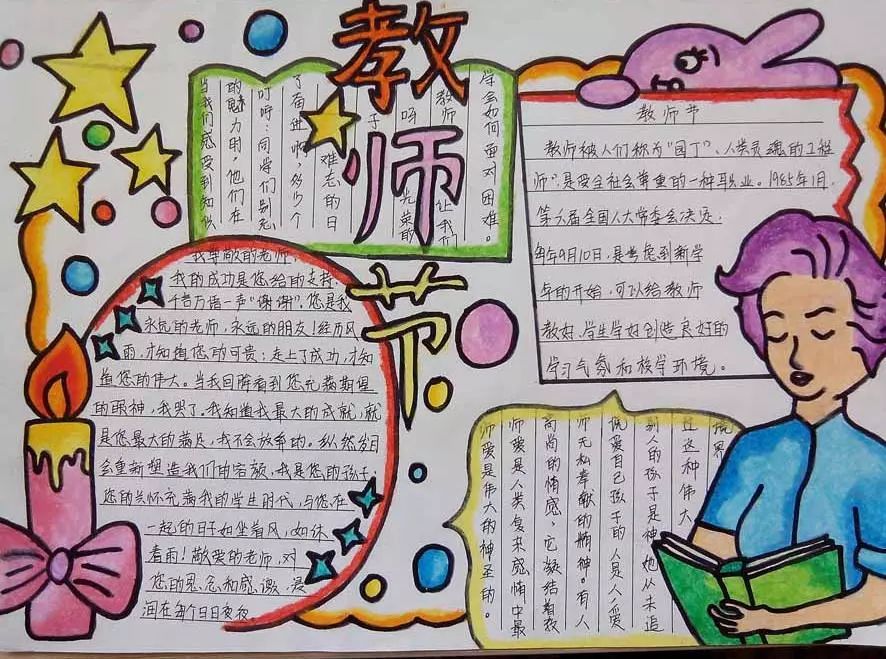 教师节
学会如何面对困难。
教师节
教师被人们称为“园丁”、人类灵魂的工程
师”,是受全社会尊重的一种职业。1985年1月,
第六届全国人大常委会决定,
每年9月10日,是考虑到新学
年的开始,可以给教师
教好、学生学好创造良好的
学习气氛和校学环境。
的魅力时,他们在
当我们感受到知识
我尊敬的老师
我的成功是您给的支持,
千言万语一声“谢谢”,您是我
永远的老师,永远的朋友!经历风
雨,才知道您的可贵;走上了成功,才知
道您的伟大。当我回眸看到您充满期望
的眼神,我哭了,我知道我最大的成就,就
是您最大的满足,我不会放弃的。纵然岁月
会重新塑造我们的容颜,我是您的孩子;
您的关怀充满我的学生时代,与您在
一起的日子如坐着风,如沐
着雨!敬爱的老师,对
您的思念和感激,浸
润在每个日日夜夜
过这种伟大
别人的孩子是神,她从未追
说爱自己孩子的人是人,爱
师无私奉献的精神。有人
高尚的情感,它凝结着教
师爱是人类复来感情中最
师爱是伟大的神圣的。